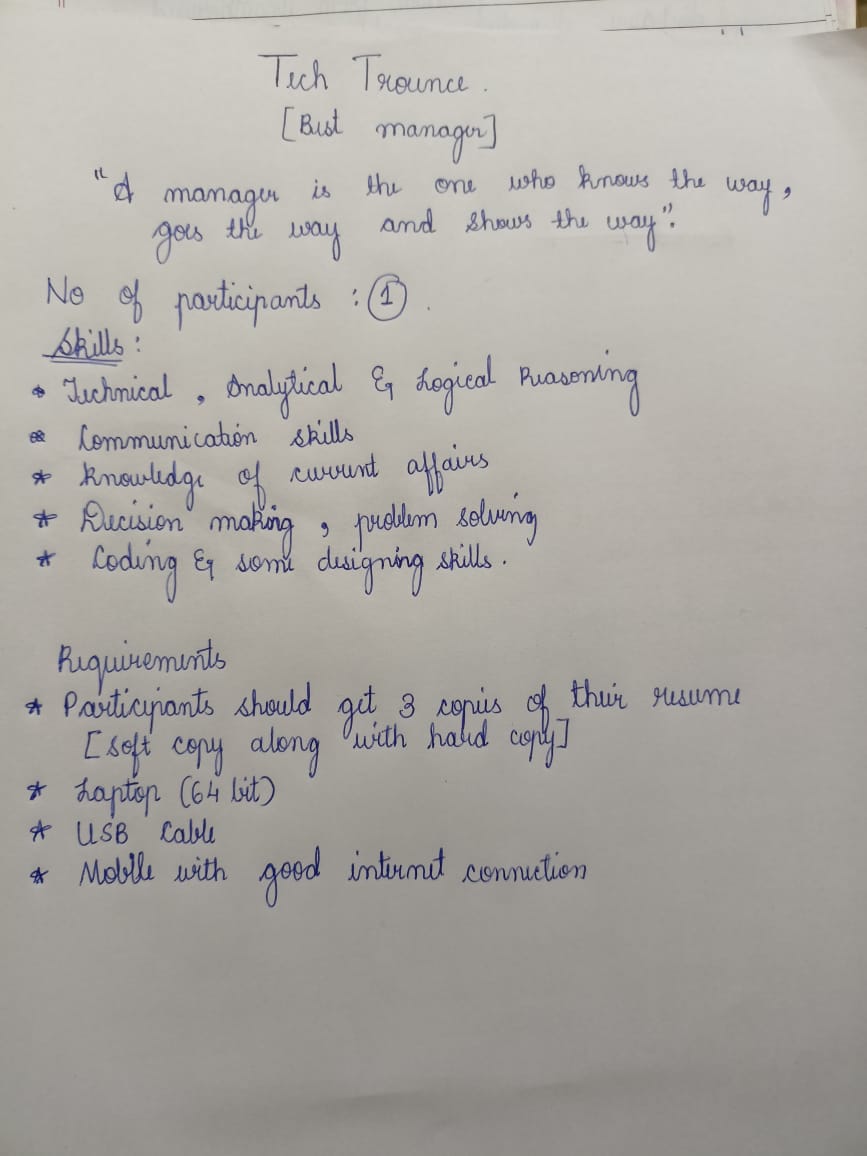 Tech Trounce.
[Best manager]
"A manager is the one who knows the way,
goes the way and shows the way".
No of participants : 1.
Skills:
* Technical, Analytical & Logical Reasoning
* Communication skills
* Knowledge of current affairs
* Decision making, problem solving
* Coding & some designing skills.
Requirements
* Participants should get 3 copies of their resume
[soft copy along with hard copy]
* Laptop (64 bit)
* USB Cable
* Mobile with good internet connection